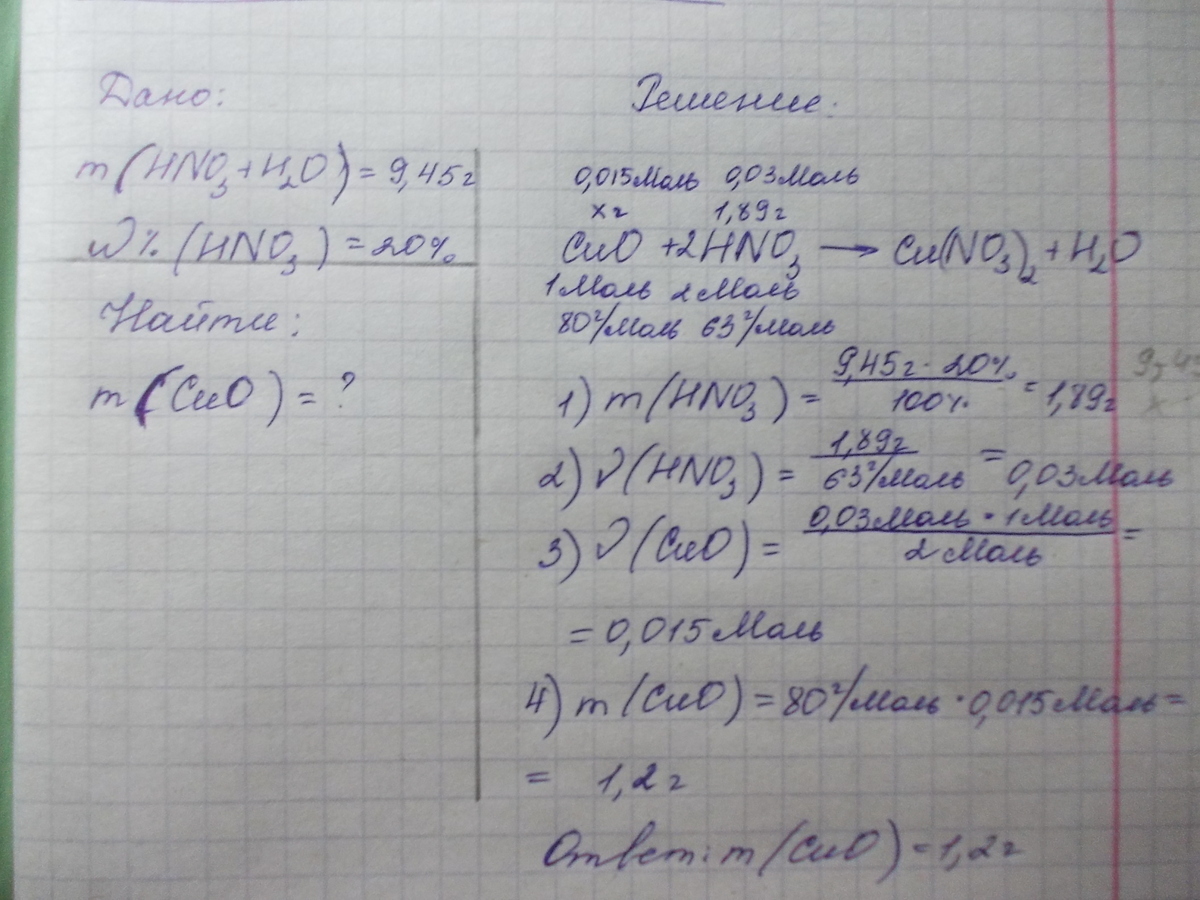 Дано:
m(HNO₃+H₂O)=9,45г
W%(HNO₃)=20%
Найти:
m(CuO)=?
Решение:
0,015Моль 0,03Моль
xг 1,89г
CuO +2HNO₃ → Cu(NO₃)₂+H₂O
1Моль 2Моль
80г/Моль 63г/Моль
1) m(HNO₃) = 9,45г · 20% / 100% = 1,89г
2) ν(HNO₃) = 1,89г / 63г/Моль = 0,03Моль
3) ν(CuO) = 0,03Моль · 1Моль / 2Моль =
= 0,015Моль
4) m(CuO)=80г/Моль · 0,015Моль=
= 1,2г
Ответ: m(CuO)=1,2г